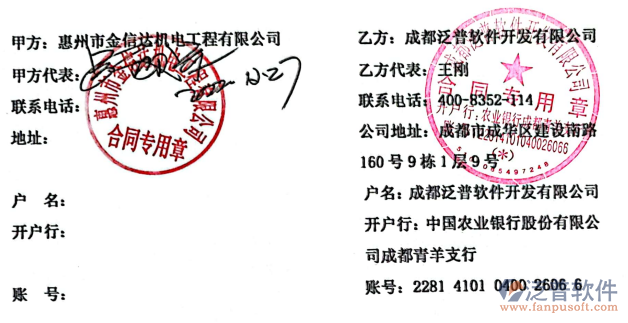 甲方：惠州市金信达机电工程有限公司
甲方代表：
联系电话：
地址：
户 名：
开户行：
账 号：
惠州市金信达机电工程有限公司
合同专用章
乙方：成都泛普软件开发有限公司
乙方代表：王刚
联系电话：400-8352-114
公司地址：成都市成华区建设南路
160号9栋1层9号
户名：成都泛普软件开发有限公司
开户行：中国农业银行股份有限公
司成都青羊支行
账号：2281 4101 0400 2606 6
成都泛普软件开发有限公司
合同专用章
泛普软件
www.fanpusoft.com